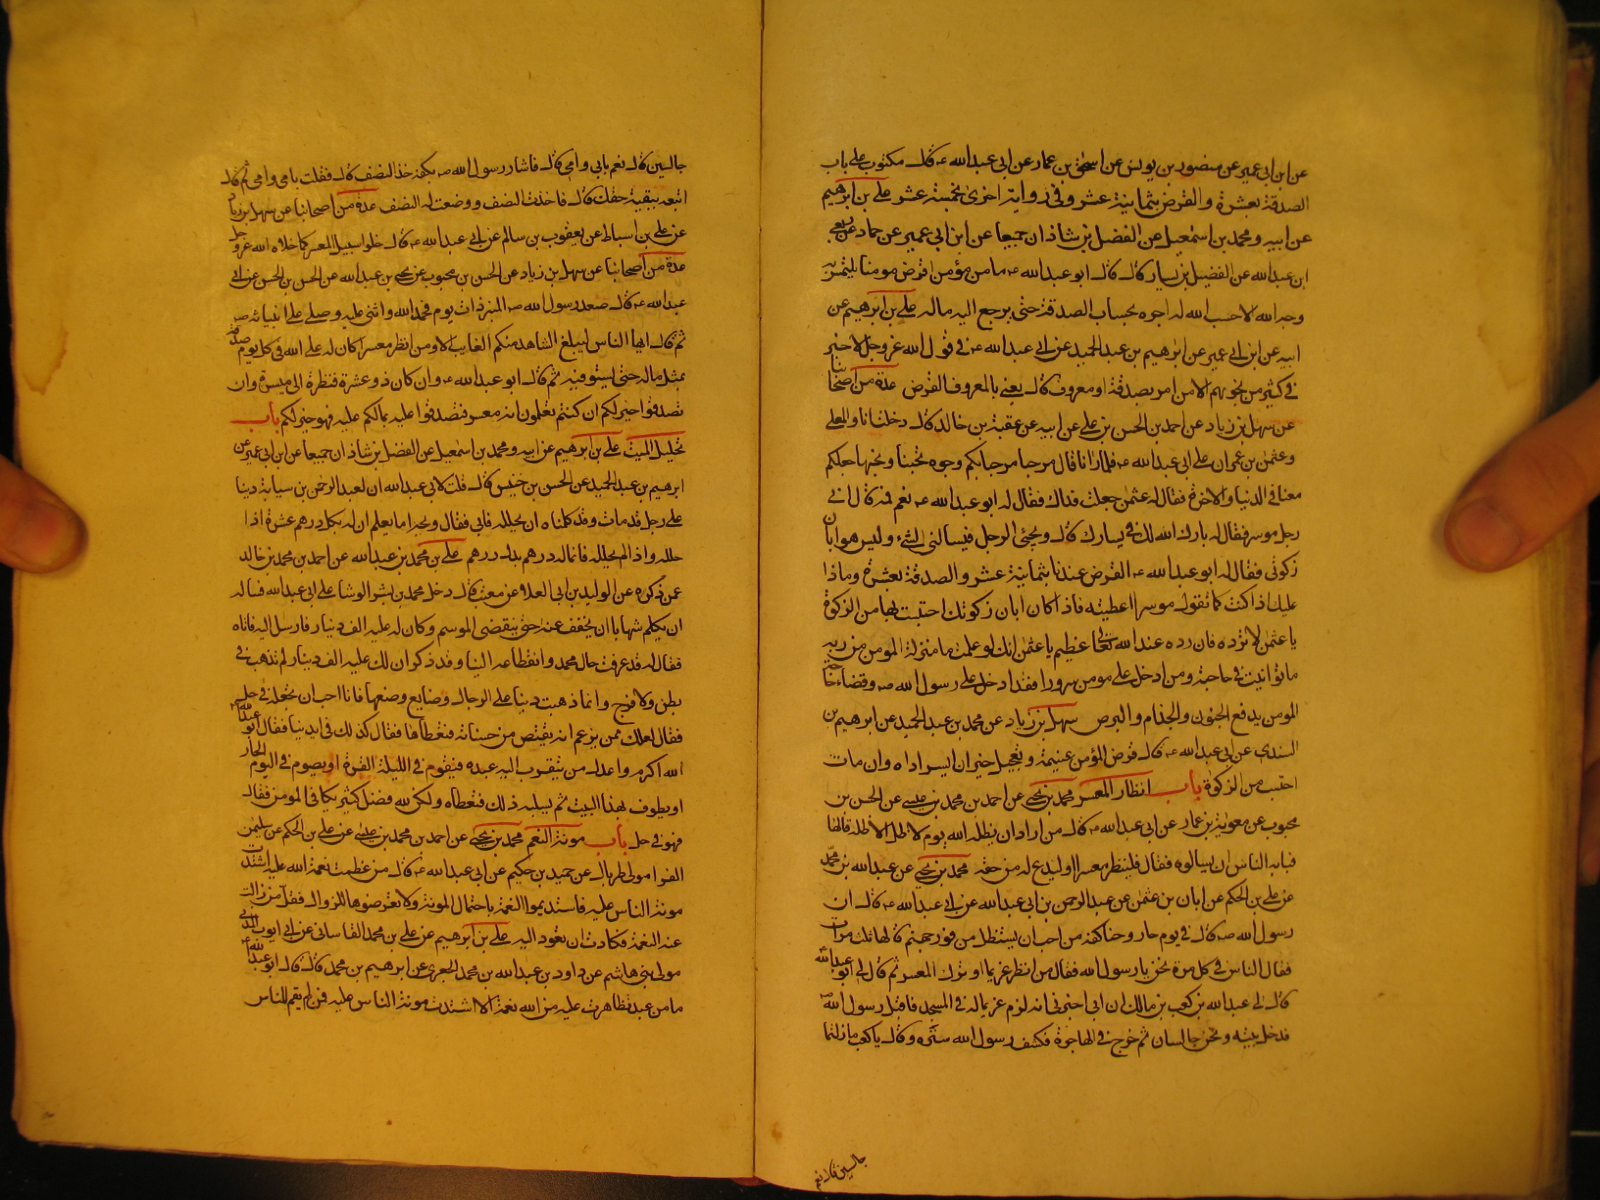 عن ابن ابي عمير عن منصور بن يونس عن اسحق بن عمار عن ابي عبدالله ء قال مكتوب على باب
الصدقة بعشرة والقرض بثمانية عشر وفي رواية اخرى بخمسة عشر علي بن ابرهيم
عن ابيه ومحمد بن اسمعيل عن الفضل بن شاذان جميعا عن ابن ابي عمير عن حماد عن ربعي
ابن عبدالله عن الفضيل بن يسار قال قال ابو عبدالله ء ما من مؤمن اقرض مومنا يلتمس به
وجه الله الا حسب الله له اجره بحساب الصدقة حتى يرجع اليه ماله علي بن ابرهيم عن
ابيه عن ابن ابي عمير عن ابرهيم بن عبد الحميد عن ابي عبدالله ء في قول الله عز وجل لا خير
في كثير من نجويهم الا من امر بصدقة او معروف قال يعني بالمعروف القرض عدة من اصحابنا
عن سهل بن زياد عن احمد بن الحسن بن علي عن ابيه عن عقبة بن خالد قال دخلت انا والمعلى
وعثمن بن عمران على ابي عبدالله ء فلما رانا قال مرحبا مرحبا بكم وجوه تحبنا ونحبها جعلكم
معنا في الدنيا والاخرة فقال له عثمن جعلت فداك فقال له ابو عبدالله ء نعم فمه قال اني
رجل موسر فقال له بارك الله لك في يسارك قال ويجيئ الرجل فيسالني الشيء وليس هو ابان
زكوتي فقال له ابو عبدالله ء القرض عندنا بثمانية عشر والصدقة بعشرة وماذا
عليك اذا كنت كما تقول موسرا اعطيته فاذا كان ابان زكوتك احتسبت بها من الزكوة
يا عثمن لا ترده فان رده عند الله عظيم يا عثمن انك لو علمت ما منزلة المومن من ربه
ما توانيت في حاجته ومن ادخل على مومن سرورا فقد ادخل على رسول الله صه وقضاء حاجة
المومن يدفع الجنون والجذام والبرص سهل بن زياد عن محمد بن عبد الحميد عن ابرهيم بن
السندي عن ابي عبدالله ء قال قرض المؤمن غنيمة وتعجيل خير ان ايسر اداه وان مات
احتسب من الزكوة باب انظار المعسر محمد بن يحيى عن احمد بن محمد بن عيسى عن الحسن بن
محبوب عن معوية بن عمار عن ابي عبدالله ء قال من اراد ان يظله الله يوم لا ظل الا ظله قالها
فهابه الناس ان يسالوه فقال فلينظر معسرا او ليدع له من حقه محمد بن يحيى عن عبدالله بن محمد
عن علي بن الحكم عن ابان بن عثمن عن عبد الرحمن بن ابي عبدالله عن ابي عبدالله ء قال ان
رسول الله صه قال في يوم حار وحنا كفه من احب ان يستظل من فور جهنم قالها ثلث مرات
فقال الناس في كل مرة نحن يا رسول الله فقال من انظر غريما او ترك المعسر ثم قال لي ابو عبدالله
قال لي عبدالله بن كعب بن مالك ان ابي اخبرني انه لزم غريما له في المسجد فاقبل رسول الله
فدخل بيته ونحن جالسان ثم خرج في الهاجرة فكشف رسول الله ستره وقال يا كعب ما زلتما
جالسين قال نعم
جالسين قال نعم بابي وامي قال فاشار رسول الله صه بكفه خذ النصف قال فقلت بابي وامي ثم قال
اتبعه ببقية حقك قال فاخذت النصف ووضعت له النصف عدة من اصحابنا عن سهل بن زياد
عن علي بن اسباط عن يعقوب بن سالم عن ابي عبدالله ء قال خلوا سبيل المعسر كما خلاه الله عز وجل
عدة من اصحابنا عن سهل بن زياد عن الحسن بن محبوب عن يحيى بن عبدالله عن الحسن بن الحسن عن ابي
عبدالله ء قال صعد رسول الله صه المنبر ذات يوم فحمد الله واثنى عليه وصلى على انبيائه صه
ثم قال ايها الناس ليبلغ الشاهد منكم الغايب الا ومن انظر معسرا كان له على الله في كل يوم صدقة
بمثل ماله حتى يستوفيه ثم قال ابو عبدالله ء وان كان ذو عشرة فنظرة الى ميسرة وان
تصدقوا خير لكم ان كنتم تعلمون انه معسر فتصدقوا عليه بمالكم عليه فهو خير لكم باب
تحليل الميت علي بن ابرهيم عن ابيه ومحمد بن اسمعيل عن الفضل بن شاذان جميعا عن ابن ابي عمير عن
ابرهيم بن عبد الحميد عن الحسن بن خنيس قال قلت لابي عبدالله ان لعبد الرحمن بن سيابة دينا
على رجل قد مات وقد كلمناه ان يحلله فابى فقال ويحه اما يعلم ان له بكل درهم عشرة اذا
حلله واذا لم يحلله فانما له درهم بدل درهم علي بن محمد بن عبدالله عن احمد بن محمد بن خالد
عمن ذكره عن الوليد بن ابي العلا عن معتب قال دخل محمد بن بشر الوشا على ابي عبدالله فساله
ان يكلم شهابا ان يخفف عنه حتى ينقضي الموسم وكان له عليه الف دينار فارسل اليه فاتاه
فقال له قد عرفت حال محمد وانقطاعه الينا وقد ذكر ان لك عليه الف دينار لم تذهب في
بطن ولا فرج وانما ذهبت دينا على الرجال وضايع وضعها فانا احب ان تجعله في حل
فقال لعلك ممن يزعم انه يقتص من حسناته فتعطاها فقال كذلك في ايدينا فقال ابو عبدالله ء
الله اكرم واعدل من ان يتقرب اليه عبده فيقوم في الليلة القرة او يصوم في اليوم الحار
او يطوف بهذا البيت ثم يسلبه ذلك فتعطاه ولكن لله فضل كثير يكافي المومن فقال
فهو في حل باب مونة النعم محمد بن يحيى عن احمد بن محمد بن عيسى عن علي بن الحكم عن سليمن
الفرا مولى طربال عن حديد بن حكيم عن ابي عبدالله ء قال من عظمت نعمة الله عليه اشتدت
مونة الناس عليه فاستديموا النعمة باحتمال المونة ولا تعرضوها للزوال فقل من زالت
عنه النعمة فكادت ان تعود اليه علي بن ابرهيم عن علي بن محمد القاساني عن ابي ايوب المدني
مولى بني هاشم عن داود بن عبدالله بن محمد الجعفري عن ابرهيم بن محمد قال قال ابو عبدالله ء
ما من عبد تظاهرت عليه من الله نعمة الا اشتدت مونة الناس عليه فمن لم يقم للناس